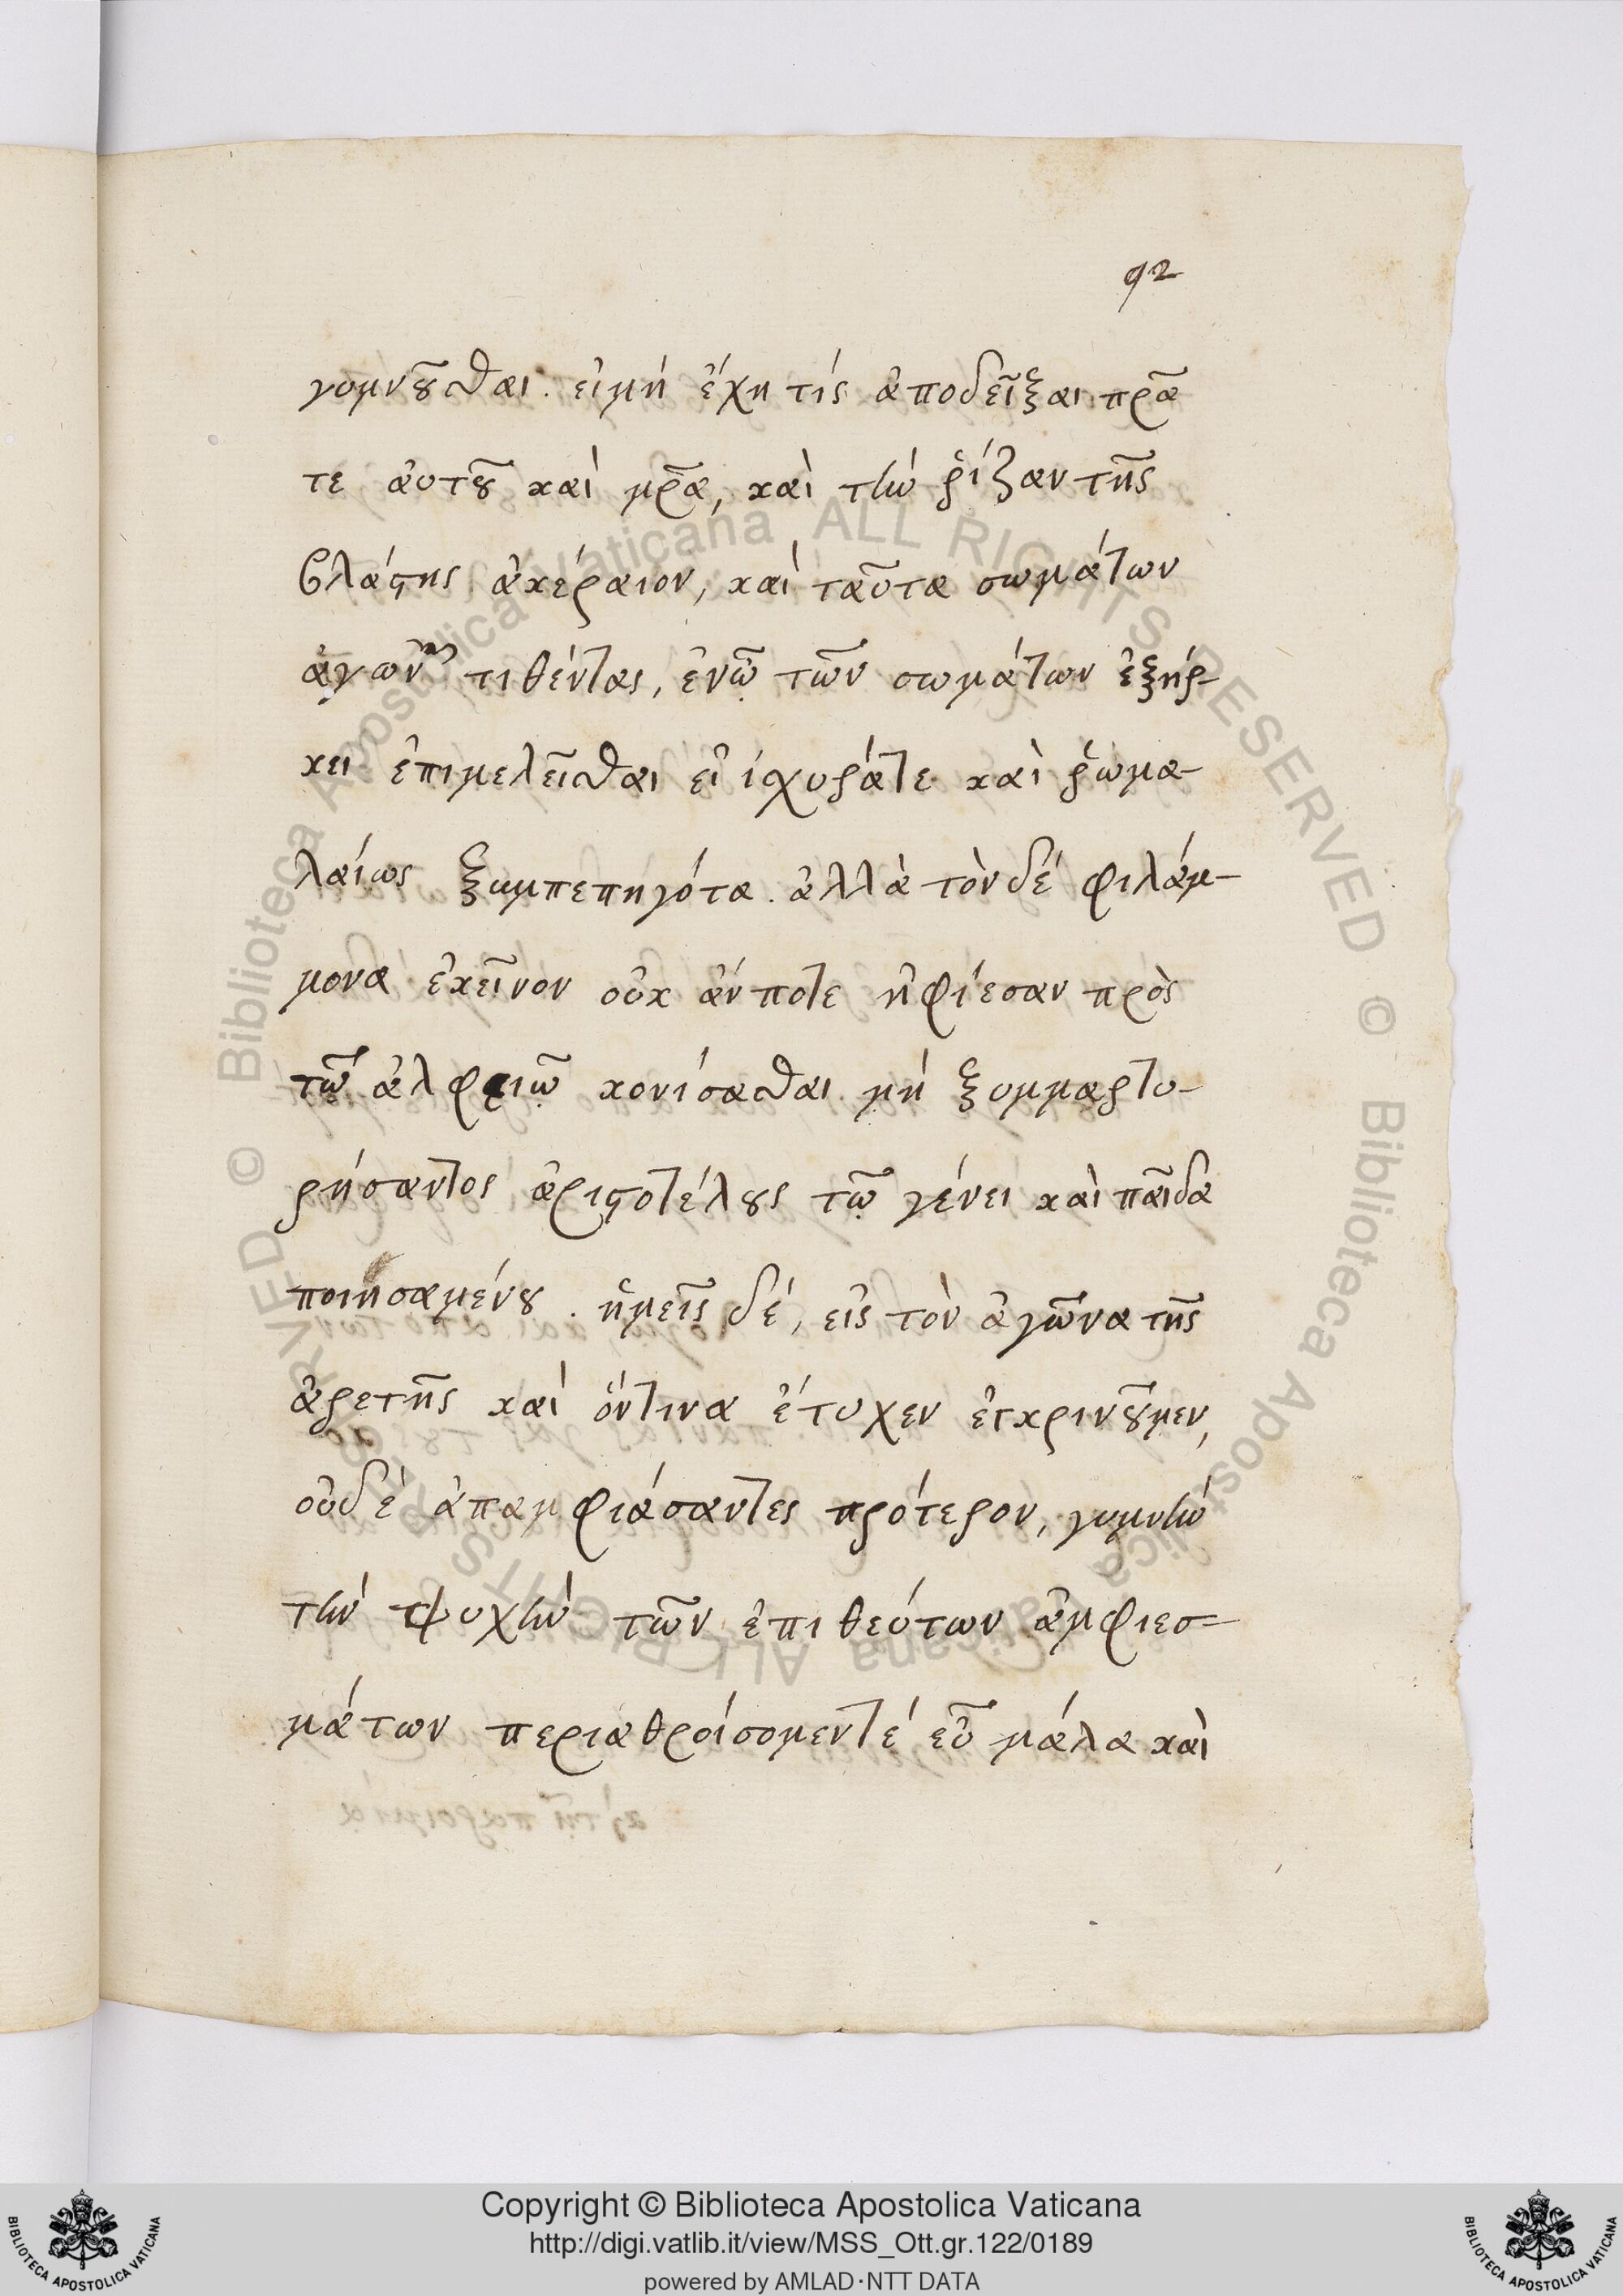 92
γυμνοῦσθαι. εἰμή ἔχη τίς ἀποδεῖξαι πρ̅α
τε ἀυτοῦ καὶ μρ̅α, καὶ τὴν ῥίζαν τῆς
βλάστης ἀκέραιον, καὶ ταῦτα σωμάτων
τιθέντας, ἐνῶ τῶν σωμάτων ἐξήρ-
κει ἐπιμελεῖσθαι εἰ ἰσχυράτε καὶ ῥωμα-
λαίως ξυμπεπηγότα. ἀλλὰ τὸν δέ φιλάμ-
μονα ἐκεῖνον οὐκ ἄνποτε ἠφίεσαν πρὸς
τῶ ἀλφειῶ κονίσασθαι μή ξυμμαρτυ-
ρήσαντος ἀριστοτέλους τῶ γένει καὶ παῖδα
ποιησαμένου. ἡμεῖς δέ, εἰς τὸν ἀγῶνα τῆς
ἀρετῆς καὶ ὅντινα ἔτυχεν ἐγκρινοῦμεν,
οὐδὲ ἀπαμφιάσαντες πρότερον, γυμνὴν
τὴν ψυχὴν τῶν ἐπιθεότων ἀμφιεσ-
μάτων περιαθροίσομεντέ εὖ μάλα καὶ
Copyright © Biblioteca Apostolica Vaticana
http://digi.vatlib.it/view/MSS_Ott.gr.122/0189
powered by AMLAD·NTT DATA
BIBLIOTECA APOSTOLICA VATICANA
BIBLIOTECA APOSTOLICA VATICANA
© Biblioteca Apostolica Vaticana ALL RIGHTS RESERVED © Biblioteca Apostolica Vaticana ALL RIGHTS RESERVED